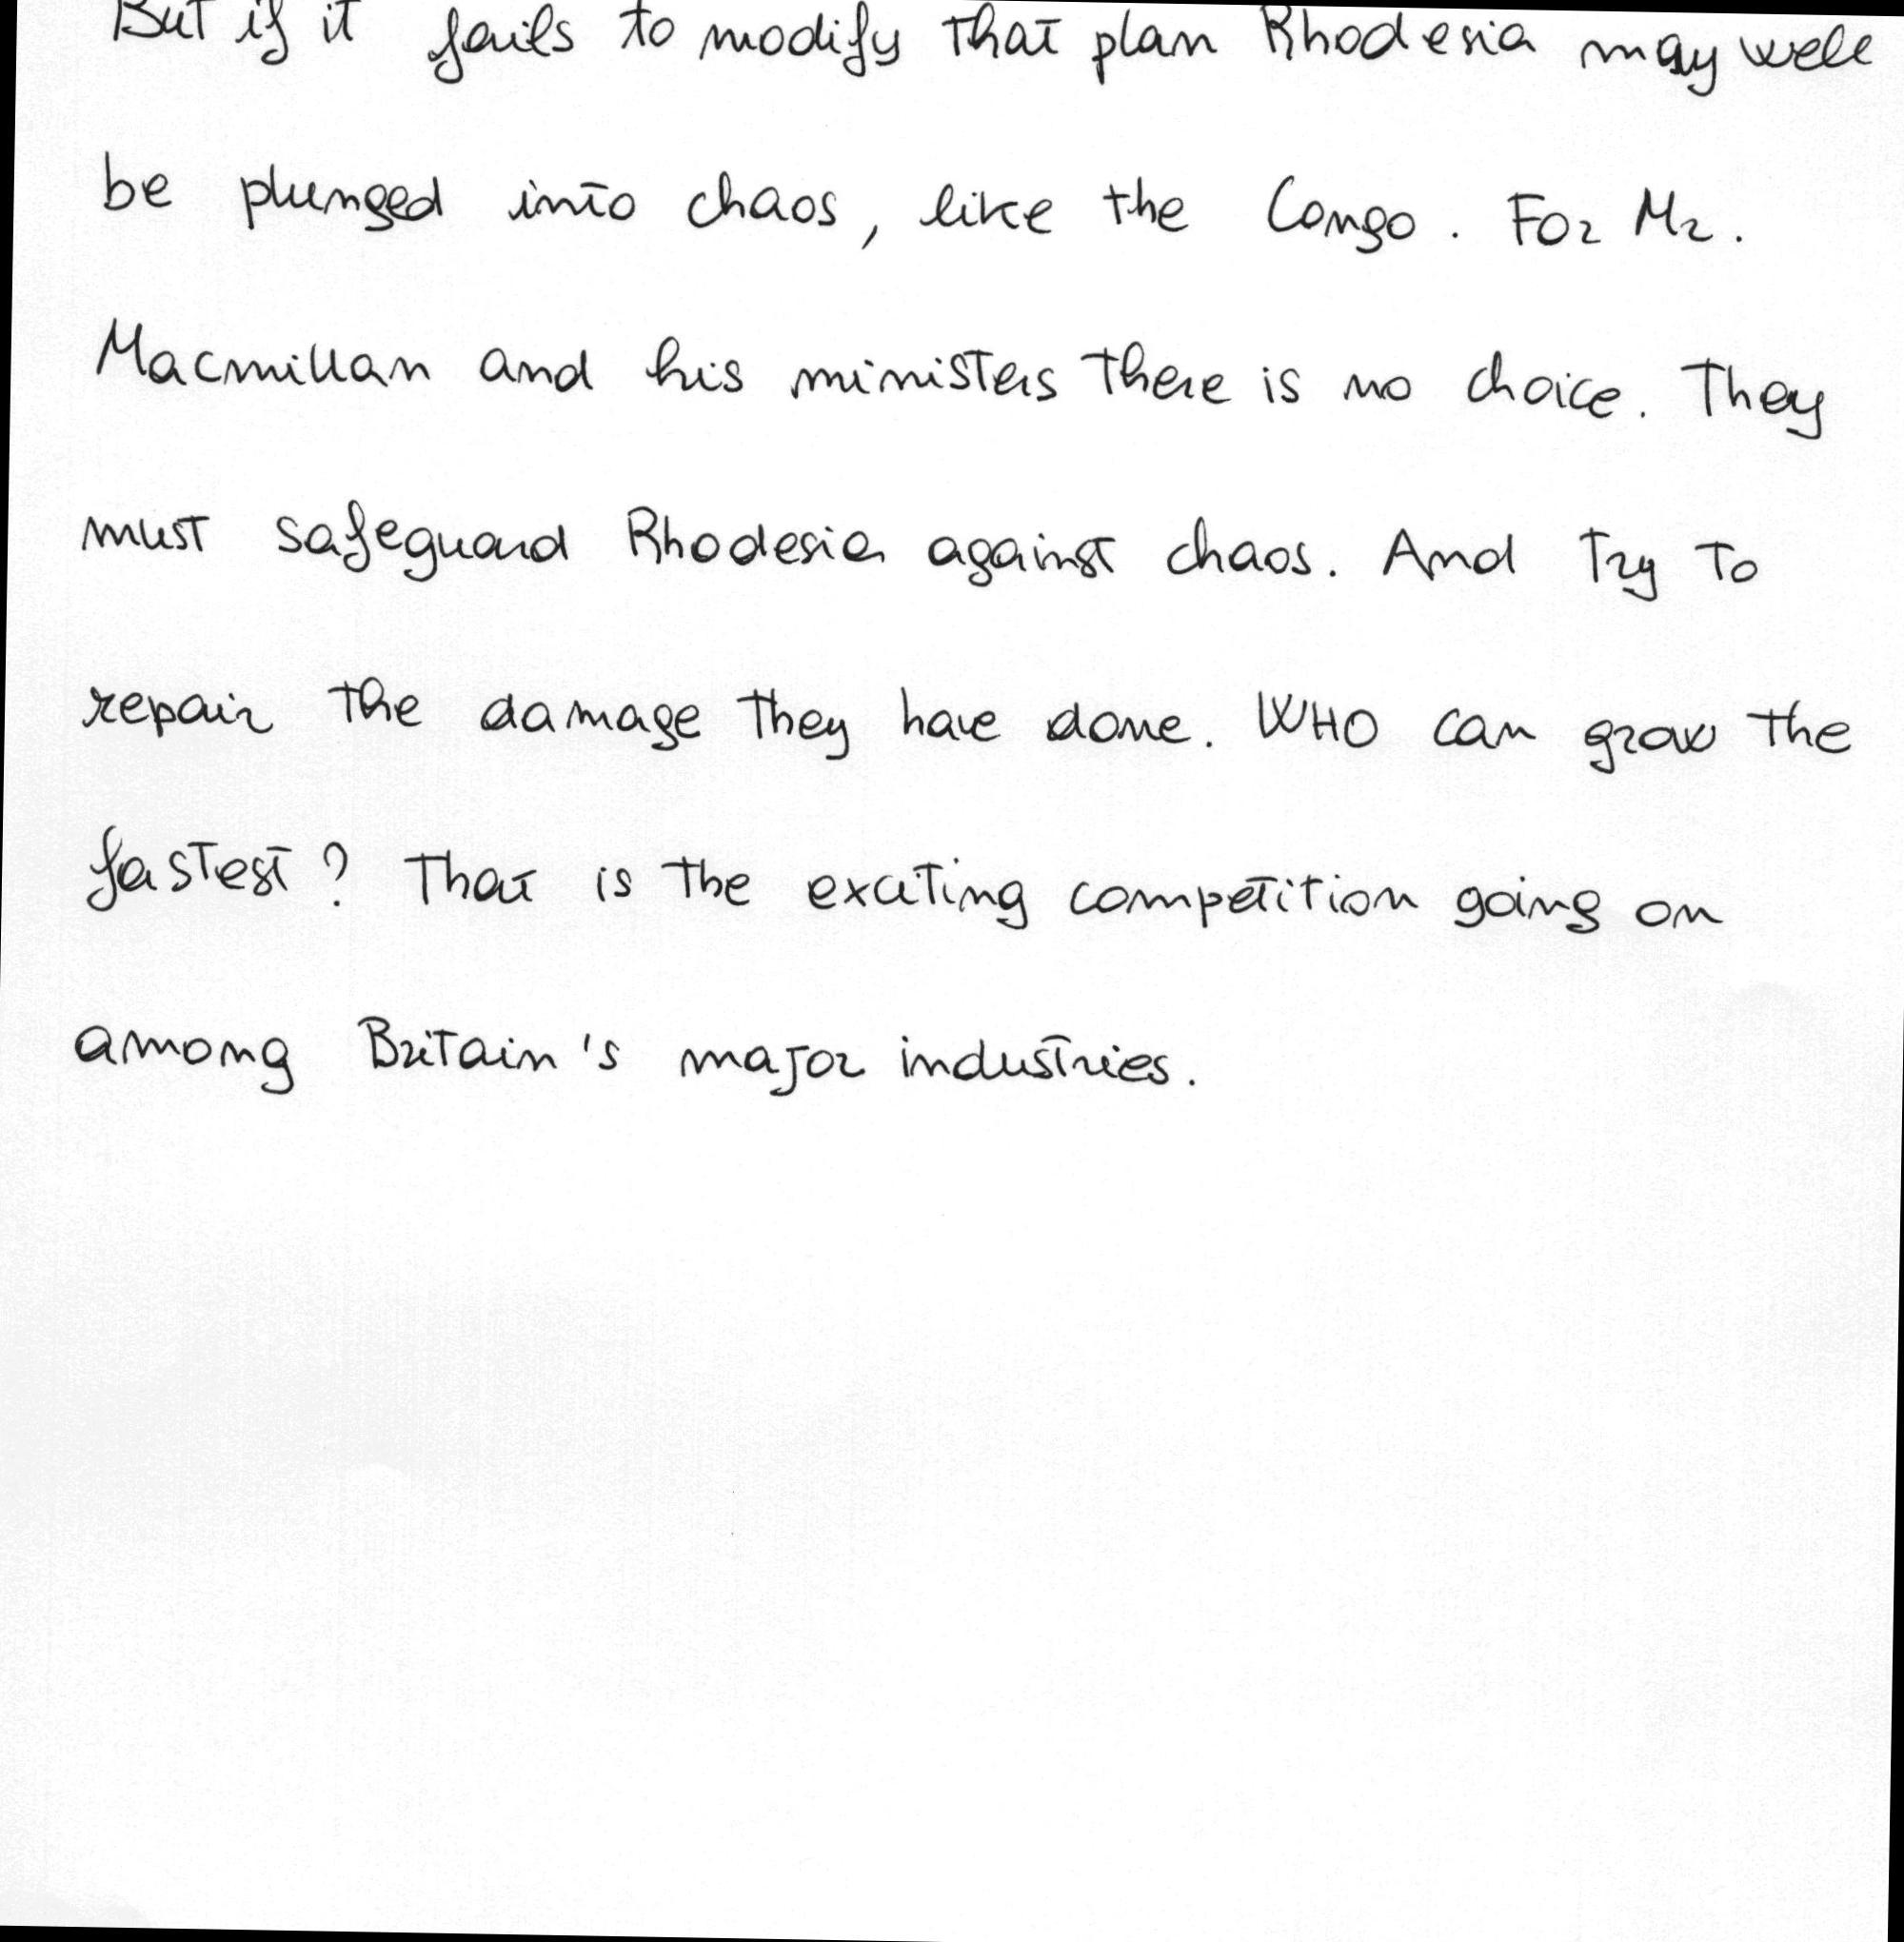 But if it fails to modify that plan Rhodesia may well
be plunged into chaos, like the Congo. For Mr.
Macmillan and his ministers there is no choice. They
must safeguard Rhodesia against chaos. And try to
repair the damage they have done. WHO can grow the
fastest? That is the exciting competition going on
among Britain's major industries.